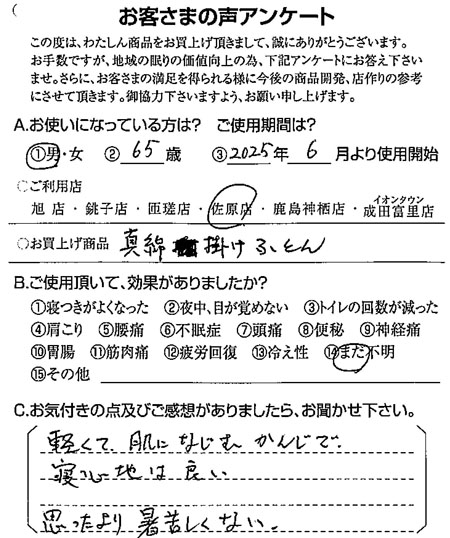 お客さまの声アンケート
この度は、わたしん商品をお買上げ頂きまして、誠にありがとうございます。
お手数ですが、地域の眠りの価値向上の為、下記アンケートにお答え下さい
ませ。さらに、お客さまの満足を得られる様に今後の商品開発、店作りの参考
にさせて頂きます。御協力下さいますよう、お願い申し上げます。
A.お使いになっている方は? ご使用期間は?
①男・女 ②65歳 ③2025年6月より使用開始
○ご利用店
旭店・銚子店・匝瑳店・佐原店・鹿島神栖店・イオンタウン成田富里店
○お買上げ商品 真綿掛けふとん
B.ご使用頂いて、効果がありましたか?
①寝つきがよくなった ②夜中、目が覚めない ③トイレの回数が減った
④肩こり ⑤腰痛 ⑥不眠症 ⑦頭痛 ⑧便秘 ⑨神経痛
⑩胃腸 ⑪筋肉痛 ⑫疲労回復 ⑬冷え性 ⑭まだ不明
⑮その他
C.お気付きの点及びご感想がありましたら、お聞かせ下さい。
軽くて肌になじむかんじで、
寝心地は良い
思ったより暑苦しくない。